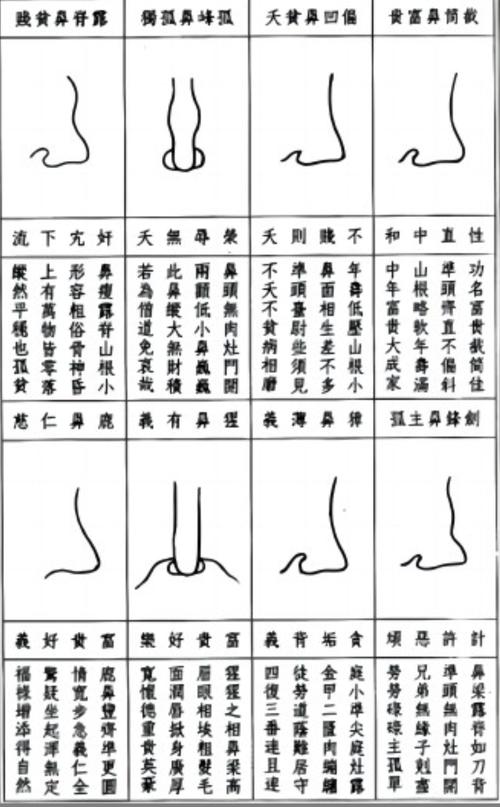 截筒鼻富貴
偏凹鼻貧夭
孤峰鼻孤獨
露脊鼻貧賤
性直中和
不賤則夭
榮辱無夭
奸宄下流
功名富貴截筒佳
準頭齊直不偏斜
山根略軟年壽滿
中年富貴大成家
年壽低壓山根小
鼻面相生差不多
準頭臺尉些須見
不夭不貧病相磨
鼻頭無肉灶門開
兩顴低小鼻巍巍
此鼻縱大無財積
若為僧道免哀哉
鼻瘦露脊山根小
形容粗俗骨神昏
上有萬物皆零落
縱然平穩也孤貧
劍鋒鼻主孤
獐鼻薄義
猩鼻有義
鹿鼻仁慈
計許惡
貪垢背義
富貴好樂
富貴好義
鼻梁露脊如刀背
準頭無肉灶門開
兄弟無緣子剋盡
勞勞碌碌主孤單
庭小準尖庭灶露
金甲二匱肉繃繃
徒勞道蔭難居守
四復三番連且
猩猩之相鼻梁高
眉眼相挨粗髮毛
面濶唇掀身廣厚
寬懷德重貴英豪
鹿鼻豐齊準更圓
情寬步急義仁全
驚疑坐起渾無定
福祿增添得自然